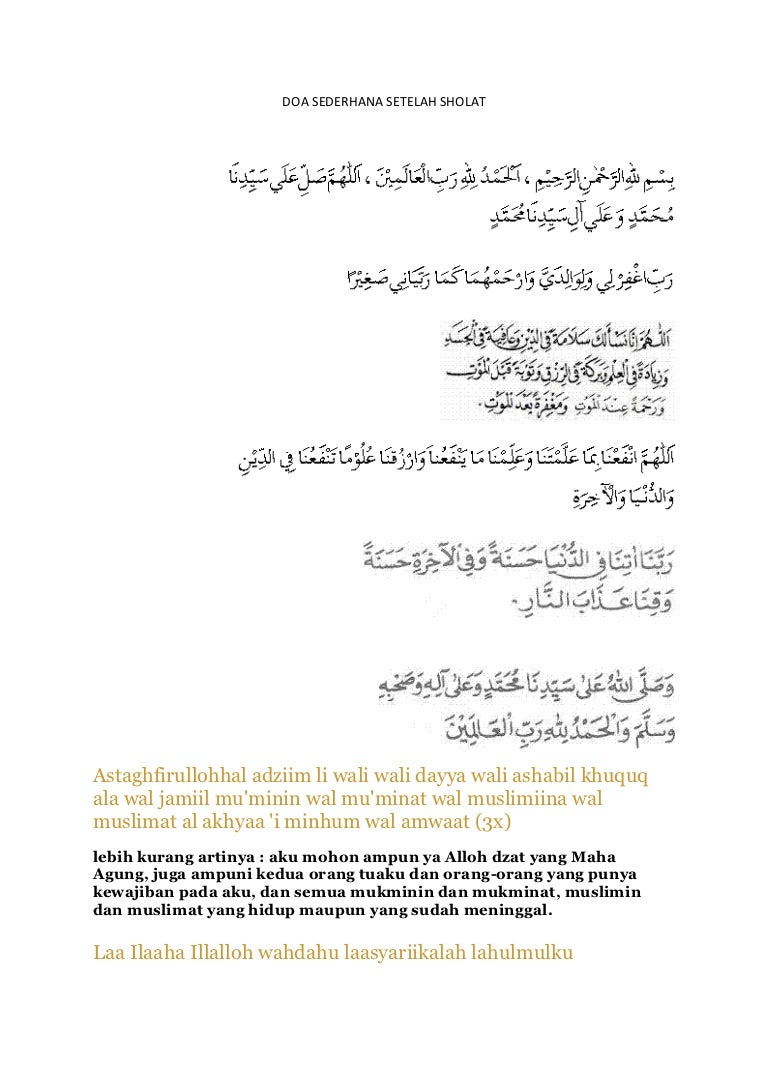 DOA SEDERHANA SETELAH SHOLAT
بِسْمِ للهِ الرَّحْمٰنِ الرَّحِيْمِ ، اَلْحَمْدُ لِلّٰهِ رَبِّ الْعَالَمِيْنَ ، اَللّٰهُمَّ صَلِّ عَلَي سَيِّدِنَا
مُحَمَّدٍ وَ عَلَي آلِ سَيِّدِنَا مُحَمَّدٍ
رَبِّ اغْفِرْ لِي وَلِوَالِدَيَّ وَارْحَمْهُمَا كَمَا رَبَّيَانِي صَغِيْرًا
اَللّٰهُمَّ اِنَّا نَسْأَلُكَ سَلَامَةً فِي الدِّيْنِ وَعَافِيَةً فِي الْجَسَدِ
وَزِيَادَةً فِي الْعِلْمِ وَبَرَكَةً فِي الرِّزْقِ وَتَوْبَةً قَبْلَ الْمَوْتِ
وَرَحْمَةً عِنْدَ الْمَوْتِ وَمَغْفِرَةً بَعْدَ الْمَوْتِ.
اَللّٰهُمَّ انْفَعْنَا بِمَا عَلَّمْتَنَا وَعَلِّمْنَا مَا يَنْفَعُنَا وَارْزُقْنَا عُلُوْمًا تَنْفَعُنَا فِي الدِّيْنِ
وَالدُّنْيَا وَالْآخِرَةِ
رَبَّنَا اٰتِنَا فِي الدُّنْيَا حَسَنَةً وَفِي الْاٰخِرَةِ حَسَنَةً
وَقِنَا عَذَابَ النَّارِ.
وَصَلَّى اللهُ عَلٰى سَيِّدِنَا مُحَمَّدٍ وَعَلٰى آلِهِ وَصَحْبِهِ
وَسَلَّمَ وَالْحَمْدُ لِلّٰهِ رَبِّ الْعَالَمِيْنَ
Astaghfirullohhal adziim li wali wali dayya wali ashabil khuquq
ala wal jamiil mu'minin wal mu'minat wal muslimiina wal
muslimat al akhyaa 'i minhum wal amwaat (3x)
lebih kurang artinya : aku mohon ampun ya Alloh dzat yang Maha
Agung, juga ampuni kedua orang tuaku dan orang-orang yang punya
kewajiban pada aku, dan semua mukminin dan mukminat, muslimin
dan muslimat yang hidup maupun yang sudah meninggal.
Laa Ilaaha Illalloh wahdahu laasyariikalah lahulmulku